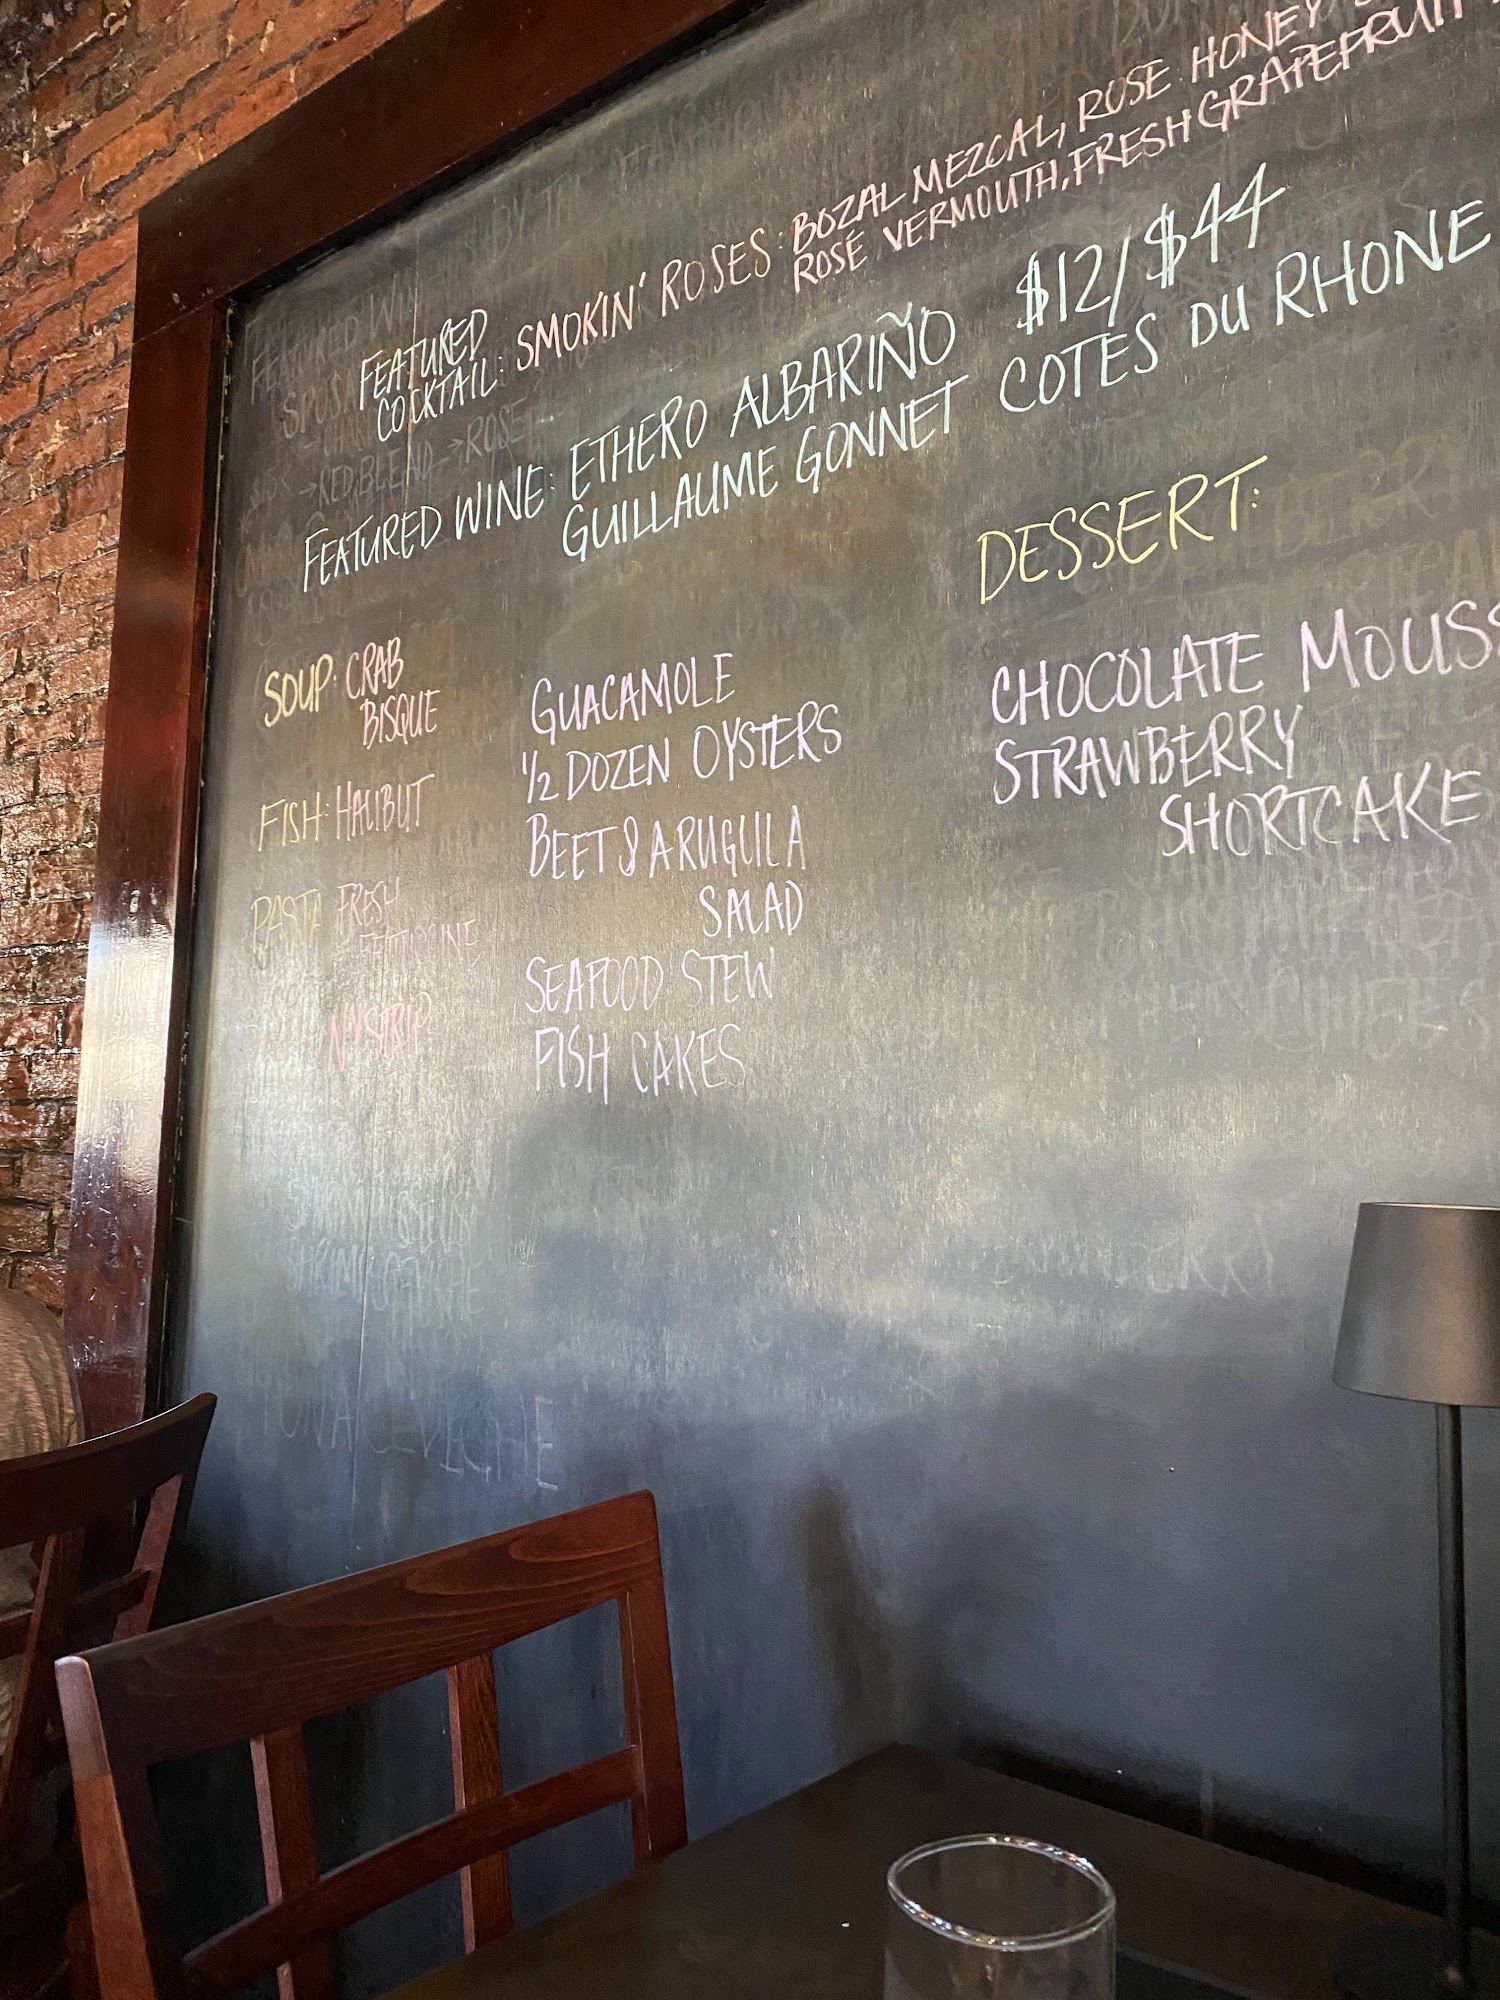 FEATURED
COCKTAIL: SMOKIN' ROSES: BOZAL MEZCAL, ROSE HONEY
ROSE VERMOUTH, FRESH GRAPEFRUIT
FEATURED WINE: ETHERO ALBARIÑO $12/$44
GUILLAUME GONNET COTES DU RHONE
SOUP: CRAB
BISQUE
FISH: HALIBUT
PASTA FRESH
FETTUCCINE
NY STRIP
GUACAMOLE
1/2 DOZEN OYSTERS
BEET & ARUGULA
SALAD
SEAFOOD STEW
FISH CAKES
DESSERT:
CHOCOLATE MOUSS
STRAWBERRY
SHORTCAKE
FEATURED WINE
RED BLEND → ROSE
TUNA CEVICHE